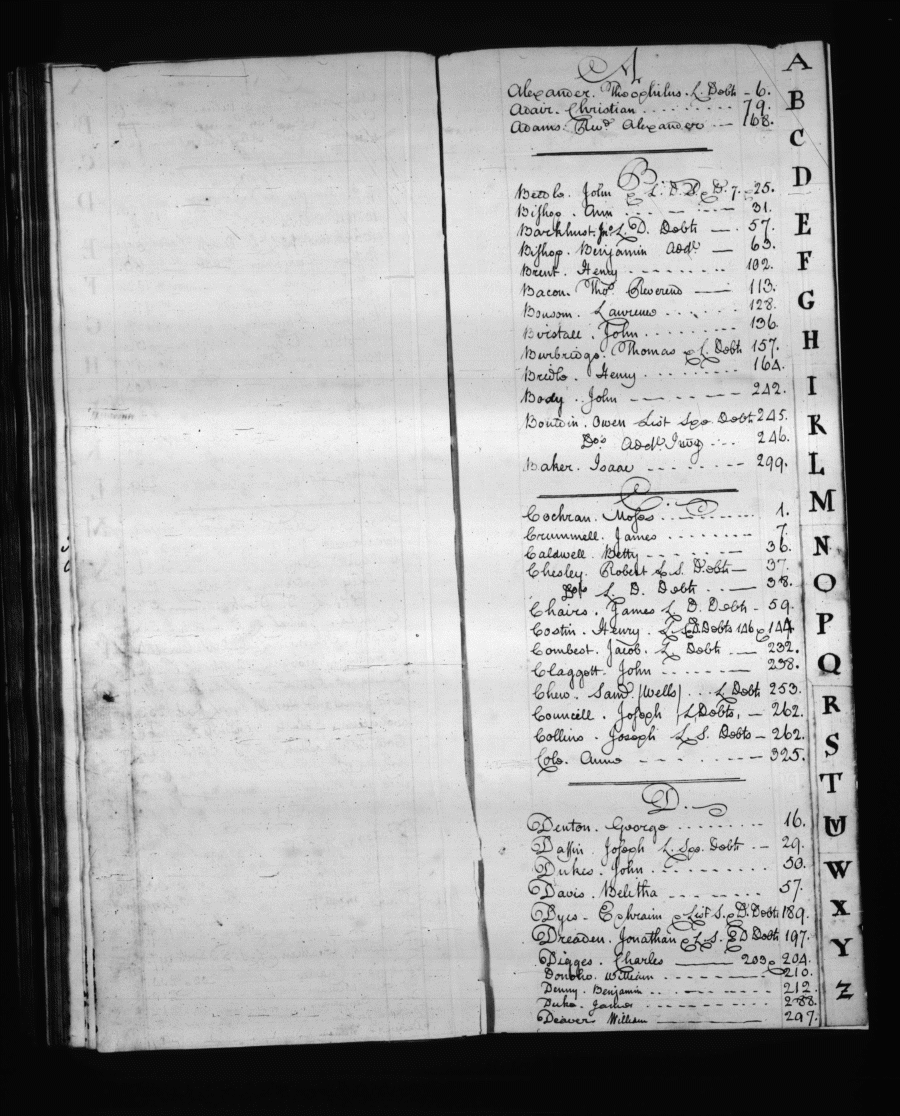 A
Alexander. Theophilus. L. Debts - 6.
Adair. Christian 79.
Adams. Revd. Alexander 168.
B
Beedle. John & L. D. D. & D. 7. 25.
Bishop. Ann 31.
Barkhust. Jno. L. D. Debts 57.
Bishop. Benjamin Addl. 63.
Brent. Henry 102.
Bacon. Thos. Reverend 113.
Bonsom. Lawrence 128.
Birstall. John 136.
Burbridge. Thomas & L. Debts 157.
Bredlo. Henry 164.
Body. John 242.
Bowdoin. Owen List Spe. Debts 245.
Do. Addl. Invy 246.
Baker. Isaac 299.
C
Cochran. Moses 1.
Crummell. James 7.
Caldwell. Betty 36.
Chesley. Robert L. S. Debts 37.
Do. L. D. Debts 38.
Chairs. James L. D. Debts - 59.
Costin. Henry. L. & D Debts 146 & 144
Combest. Jacob. L. Debts 232.
Claggett. John 238.
Chew. Saml. /Wells/ L Debts 253.
Councill. Joseph / L Debts, 262.
Collins. Joseph L. S. Debts - 262.
Cole. Anne 325.
D.
Denton. George 16.
Daffin. Joseph L. Spe. Debts 29.
Dukes. John 50.
Davis. Melitha 57.
Dyes - Ephraim & List S. & D. Debts 189.
Dreaden. Jonathan & L. S. & D Debts 197.
Digges. Charles 203 & 204.
Donoho. William 210.
Denny. Benjamin 212.
Duke. James 288.
Deaver. William 297.
A
B
C
D
E
F
G
H
I
K
L
M
N
O
P
Q
R
S
T
U
W
X
Y
Z